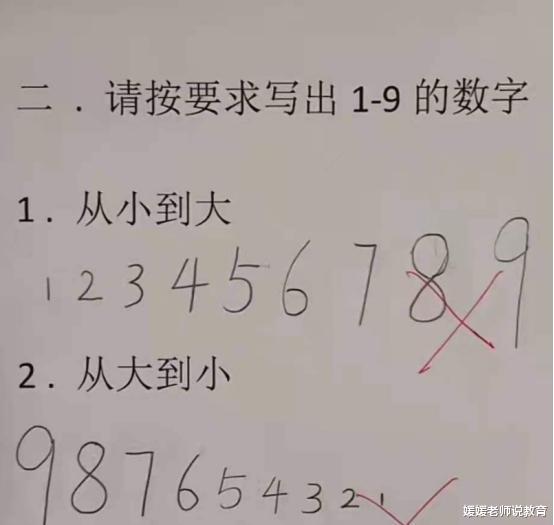 二．请按要求写出 1-9 的数字
1．从小到大
1 2 3 4 5 6 7 8 9
2．从大到小
9 8 7 6 5 4 3 2 1
媛媛老师说教育